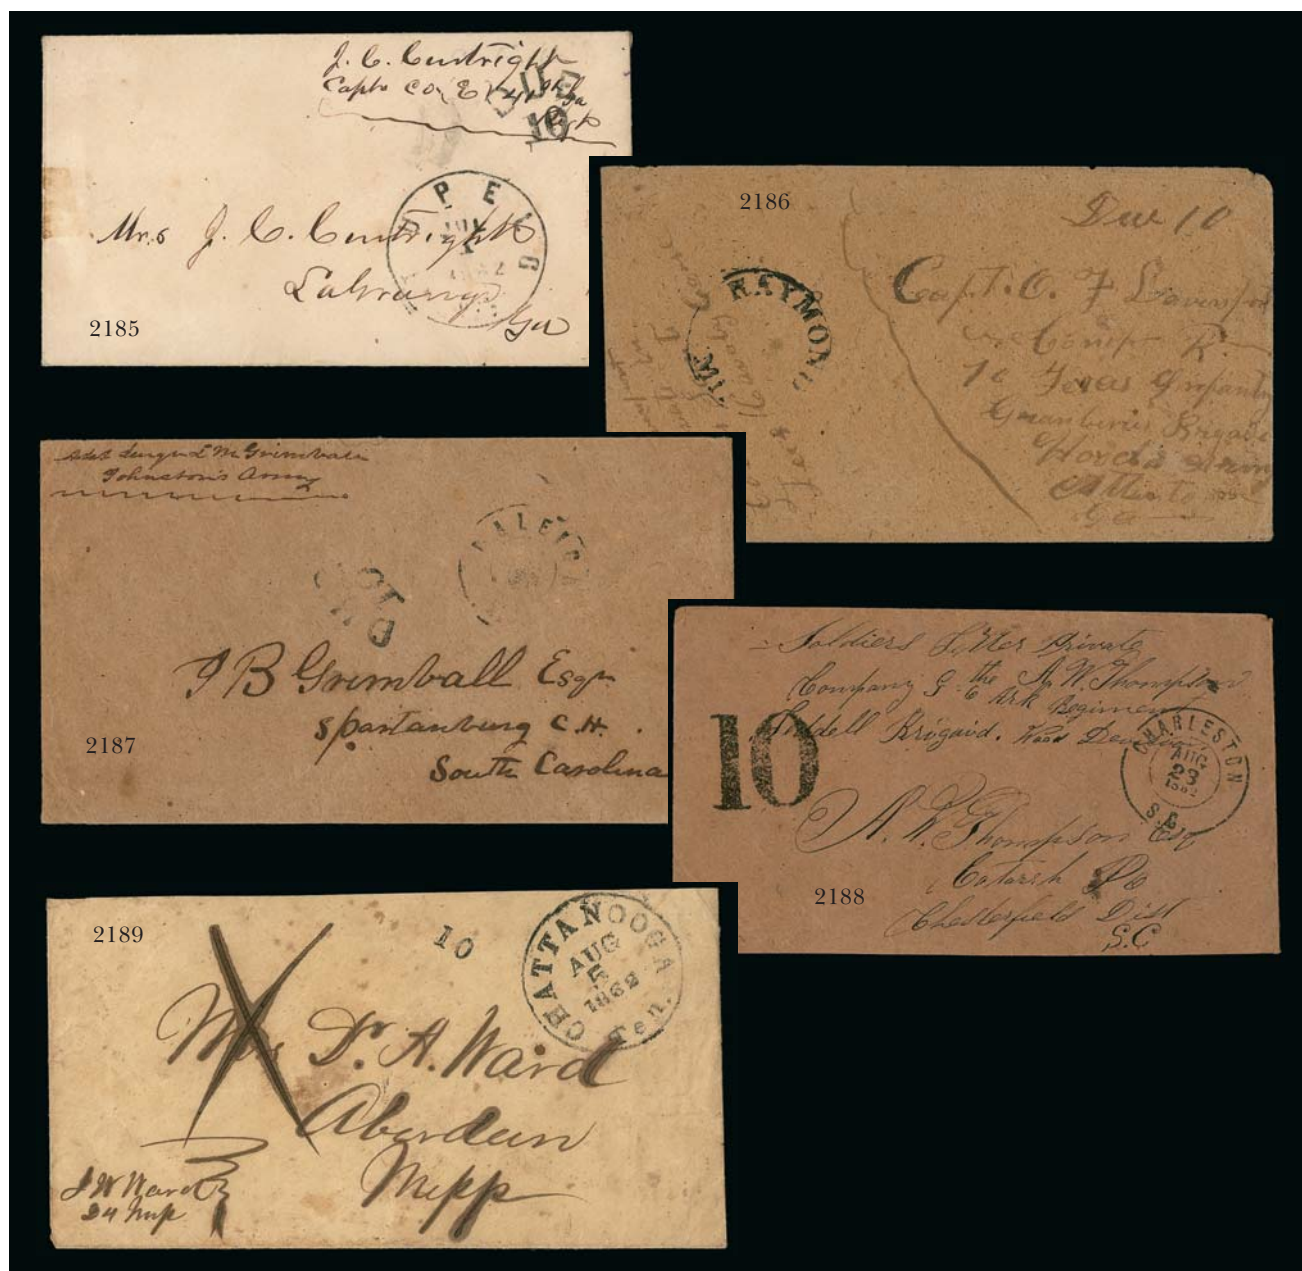 J. C. Curtright
Capt Co (E) 41st Ga
DUE
10
Mrs J. C. Curtright
Lagrange
Ga
1862
2185
2186
Due 10
RAYMOND
MI.
Capt. O. F. Davenport
Comp K
7th Texas Infantry
Granberries Brigade
Hoods Army
Atlanta
Ga
L M Grimball
Johnston's Army
RALEIGH
DUE
10
J B Grimball Esqr
Spartanburg C. H.
South Carolina
2187
Soldiers Letter Private
Company G. the A. W. Thompson
6 Ark Regiment
Liddell Brigaid.
10
CHARLESTON
AUG
23
1862
S. C.
A. W. Thompson Esq
Catarrh PO
Chesterfield Dist
S.C
2188
2189
10
CHATTANOOGA
AUG
5
1862
Ten.
Mrs Dr. A. Ward
Aberdeen
Mipp
J W Ward
24 Mip